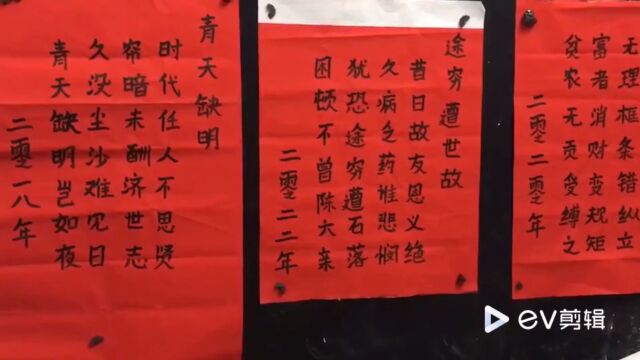 无理框条错纵立
富者消财变规矩
贫农无贡受缚之
二零二零年
途穷遭世故
昔日故友恩义绝
久病乏药谁悲悯
犹恐途穷遭石落
困顿不曾陈六亲
二零二二年
青天缺明
时代任人不思贤
帘暗未酬济世志
久没尘沙难见日
青天缺明岂如夜
二零一八年
ev剪辑